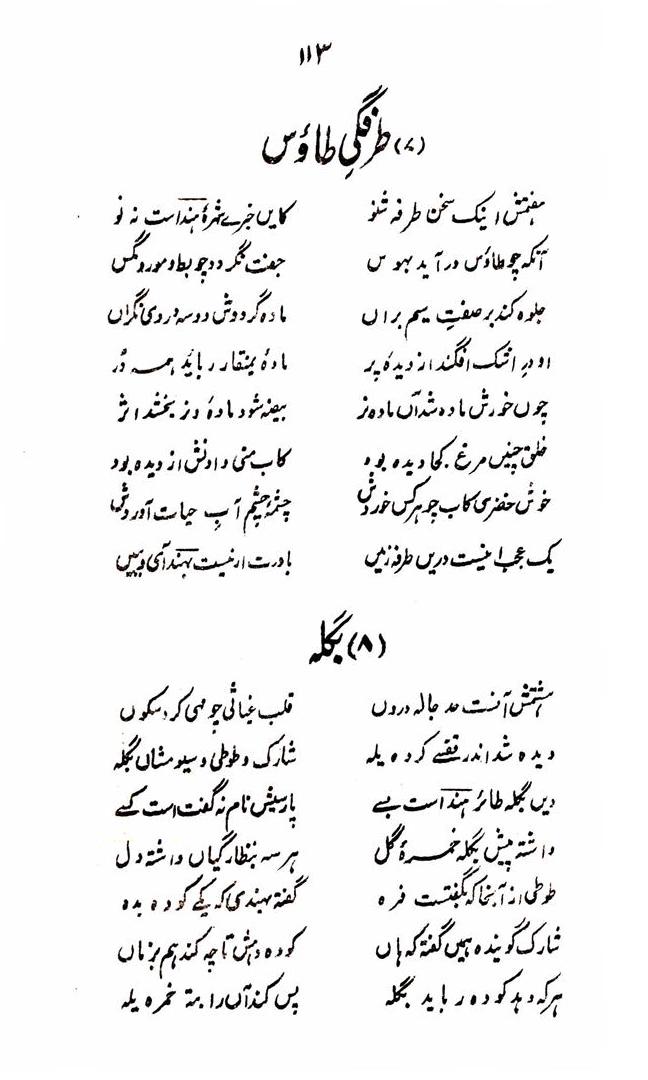 ۱۱۳
(۷) طرفگیِ طاؤس
ہفتمش اینک سخن طرفہ شنو کایں خبرے شہرۂ ہنداست نہ نو
آنکہ چو طاؤس درآید بہوس جفت نگردد چو بط و مور و مگس
جلوہ کند بر صفتِ سیم براں مادہ گرد و ش دو سہ در وی نگراں
او دُرِ اشک افگند از دیدہ پر مادۂ بمنقار رباید ہمہ دُر
چوں خورش مادہ شد آں مادہ نر بیضہ شود مادہ و نر بخشد اثر
خلق چنیں مرغ کجا دیدہ بود کاب منی دادنش از دیدہ بود
خوش خضری کاب چو ہر کس خوردش چشمۂ چشم آبِ حیات آوردش
یک عجب اینست دریں طرفہ زمیں باورت ار نیست بہند آی و ببیں
(۸) بگلہ
ہشتمش آنست جالہ دروں قلب غیاثی چو ہمی کرد سکوں
دیدہ شد اندر قفسے کردہ یلہ شارک و طوطی و سیوم شاں بگلہ
دیں بگلہ طائر ہند است بسے پارسیش نام نہ گفت است کسے
داشتہ پیش بگلہ خمرۂ گل ہر سہ بنظارگیاں داشتہ دل
طوطی از آنجا کہ بگفتست فرہ گفتہ بہندی کہ یکے کودہ بدہ
شارک گویندہ ہمیں گفتہ کہ ہاں کودہ دہش تا چہ کند ہم بزماں
ہر کہ دہد کودہ رباید بگلہ پس کند آں را بتہ خمرہ یلہ